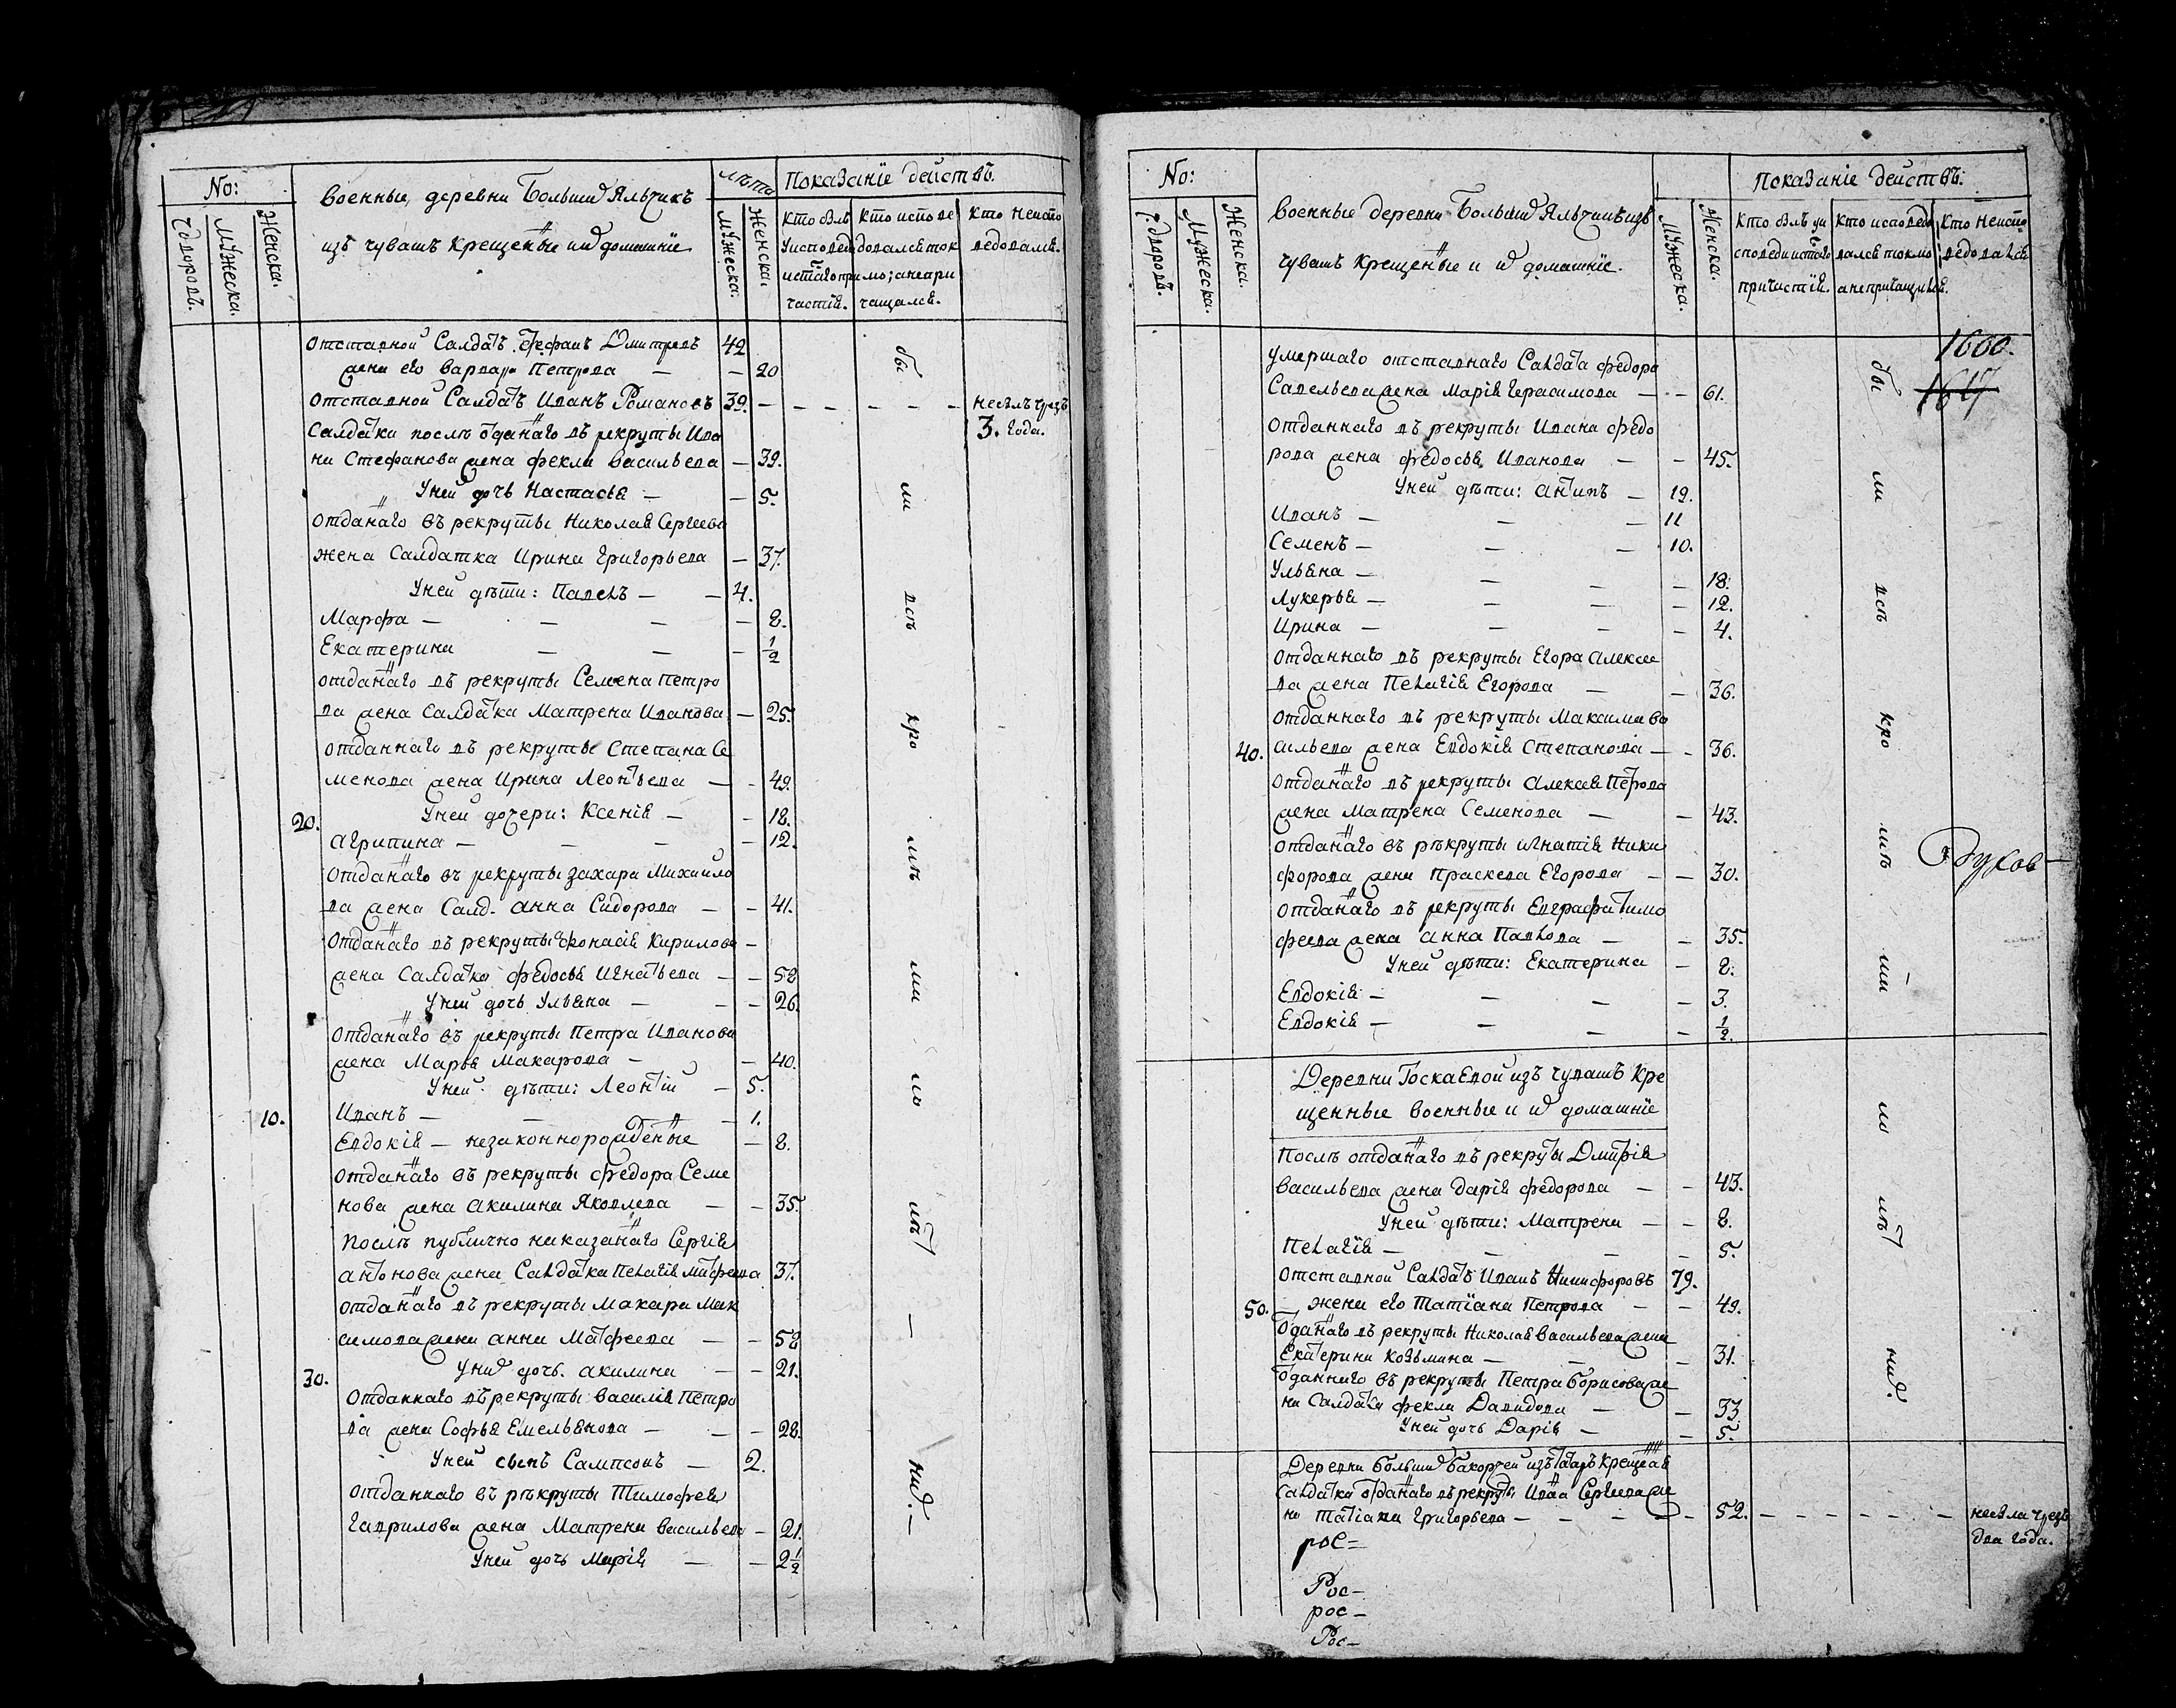 No:
Военные, деревни Больших Яльчикъ
изъ чувашъ крещеные и их домашніе
лѣта
Показаніе действъ.
Дворовъ.
Мужеска.
Женска.
Мужеска.
Женска.
кто былъ
у исповеди
и с͠таго при
частія.
кто испове
довался ток
мо; а не при
чащался.
кто не испо
ведовался.
Отставной Салдатъ Стефанъ Дмитревъ 42
жена его Варвара Петрова — — 20
Отставной Салдатъ Иванъ Романовъ 39. — — — — — — небылъ чрезъ
3. года.
Салдатки послѣ отданаго въ рекруты Ива
на Стефанова жена Фекла Васильева — 39.
У ней дочь Настасья — — 5.
Отданаго въ рекруты Николая Сергеева
жена Салдатка Ирина Григорьева — 37.
У ней дѣти: Павелъ — — 4.
Марфа — — — — 8.
Екатерина — — — 1/2
отданаго въ рекруты Семена Петро
ва жена Салдатка Матрена Иванова — 25.
отданнаго въ рекруты Степана Се
менова жена Ирина Леонтьева — - 49.
20. У ней дочери: Ксенія — - 18.
Агрипина — — — — 12.
Отданаго въ рекруты Захара Михайло
ва жена Салд. Анна Сидорова — - 41.
Отданаго въ рекруты Афонасія Кирилова —
жена Салдатка Федосья Игнатьева — — 58
У ней дочь Ульяна — — — 26.
Отданаго въ рекруты Петра Иванова
жена Марья Макарова — — 40.
У ней дѣти: Леонтій — 5.
10. Иванъ — — — 1.
Евдокія — незаконнорожденные — 8.
Отданаго въ рекруты Федора Семе
нова жена Акилина Яковлева — — 35.
Послѣ публично наказанаго Сергія
Антонова жена Салдатка Пелагія Матфеева 37.
Отданаго въ рекруты Макара Мак
симова жена Анна Матфеева — — 58
30. У них дочь Акилина — — 21.
Отданнаго въ рекруты Василія Петро
ва жена Софья Емельянова — — — 28.
У ней сынъ Сампсонъ — 2.
Отданнаго въ рекруты Тимофея
Гаврилова жена Матрена Васильева — 21.
У ней дочь Марія — — 2 1/2
бы
ли
всѣ
кро
мѣ
ма
ло
лѣт
—
них. —
No:
Военные деревни Больших Яльчикъ изъ
чувашъ крещеные и их домашніе.
Показаніе действъ:
Дворовъ.
Мужеска.
Женска.
Мужеска.
Женска.
кто былъ у и
споведи и с͠таго
причистія.
кто исповедо
вался токмо
а не причащался.
кто не испо
ведовался
1600.
1617
Умершаго отставнаго Салдата Федора
Савельева жена Марія Герасимова — - 61.
Отданнаго въ рекруты Ивана Федо
рова жена Федосья Иванова — - 45.
У ней дѣти: Антипъ — 19.
Иванъ — — — 11
Семенъ — — — 10.
Ульяна — — — — 18.
Лукерья — — — — 12.
Ирина — — — — 4.
Отданнаго въ рекруты Егора Алексее
ва жена Пелагія Егорова — — 36.
Отданнаго въ рекруты Максима Ва
40. сильева жена Евдокія Степанова — - 36.
Отданаго въ рекруты Алексея Петрова
жена Матрена Семенова — — 43.
Отданаго въ рѣкруты Игнатія Ники
форова жена Праскева Егорова — — 30.
Отданаго въ рекруты Евграфа Тимо
феева жена Анна Павлова — — 35.
У ней дѣти: Екатерина — 8.
Евдокія — — — — 3.
Евдокія — — — — 1/2.
Деревни Тоскаевой изъ чувашъ Кре
щенные военные и их домашніе
Послѣ отданаго въ рекруты Дмитрія
Васильева жена Дарія Федорова — — 43.
У ней дѣти: Матрена — — 8.
Пелагія — — — — 5.
Отставной Салдатъ Иванъ Никифоровъ 79.
50. — жена его Татіана Петрова — — 49.
Отданаго въ рекруты Николая Васильева жена
Екатерина Козьмина — — — 31.
Отданнаго въ рекруты Петра Борисова же
на Салдатка Фекла Давидова — — 33.
У ней дочь Дарія — — 5.
Деревни Больших Бакорчеи изъ татаръ крещеная
Салдатка отданаго въ рекруты Ивана Сергеева же
на Татіана Григорьева — — — — 52. — — — — — небыла чрезъ
два года.
рос=
Рос—
рос—
Рос—
бы
ли
всѣ
кро
мѣ
ма
ло
лѣт
них.